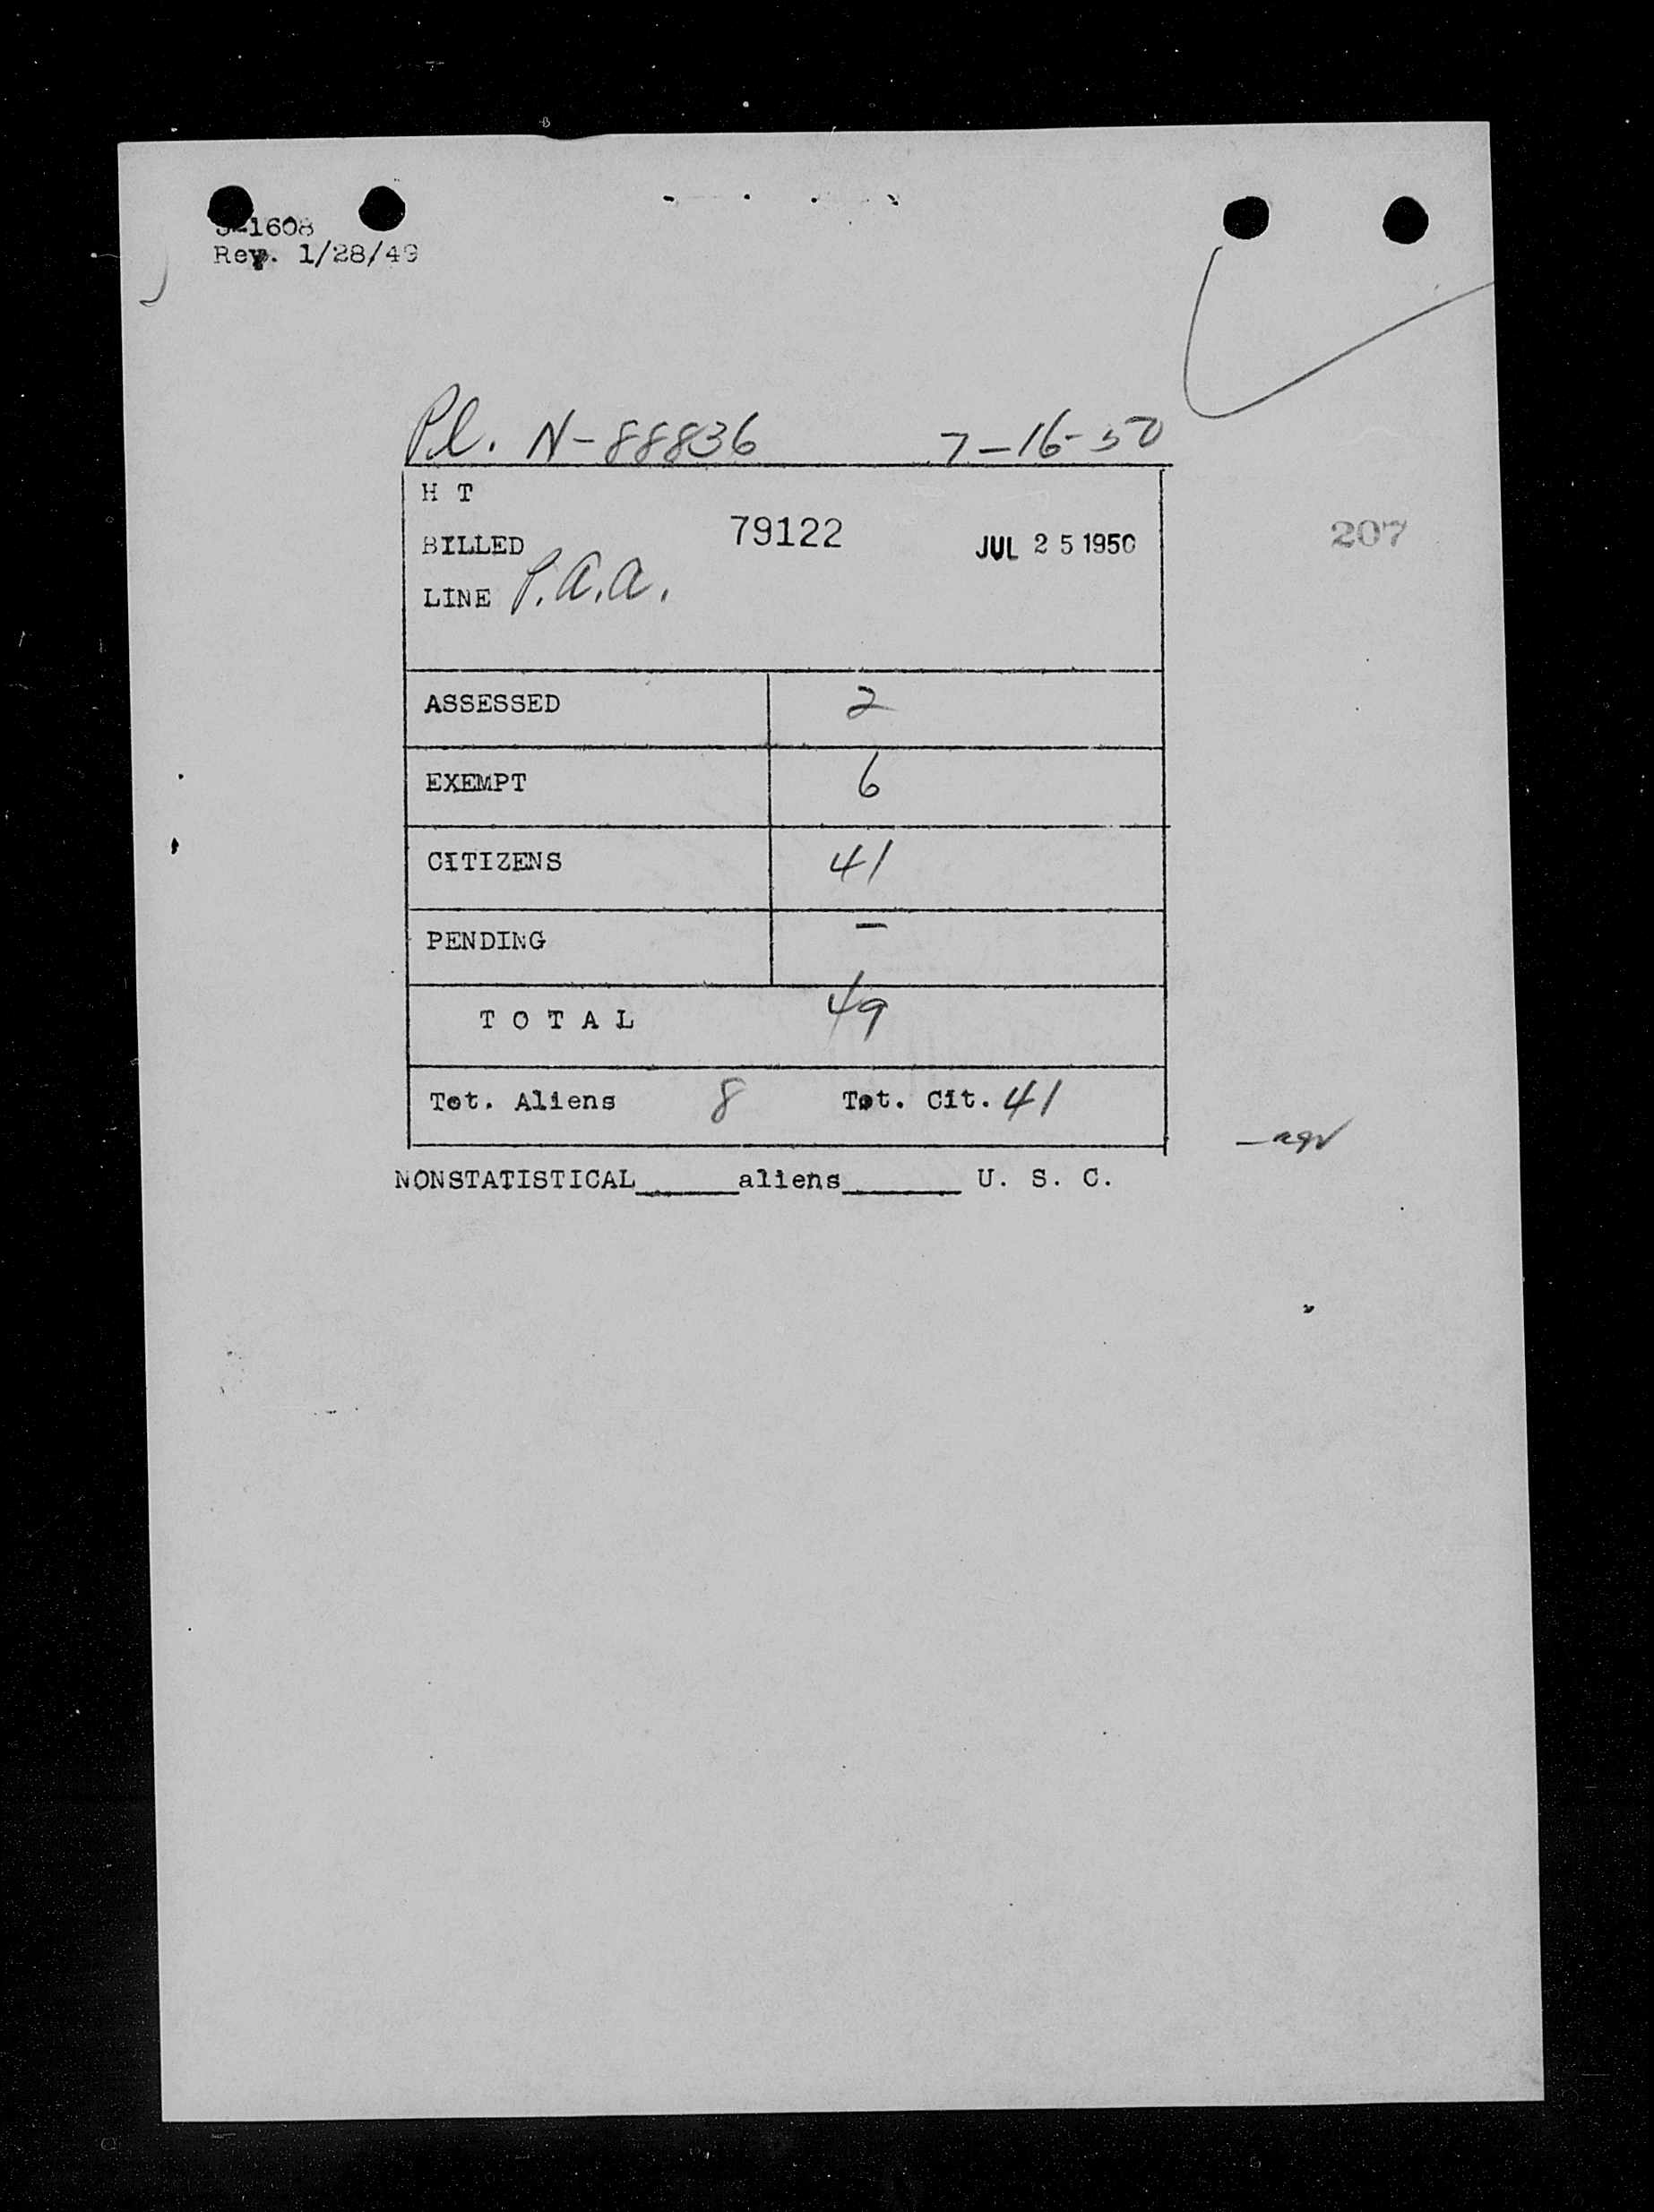 -1608
Rev. 1/28/49
Pl. N-88836 7-16-50
H T
BILLED 79122 JUL 25 1950
207
LINE P.A.A.
ASSESSED 2
EXEMPT 6
CITIZENS 41
PENDING —
TOTAL 49
Tot. Aliens 8 Tot. Cit. 41
NONSTATISTICAL______aliens_______ U. S. C.